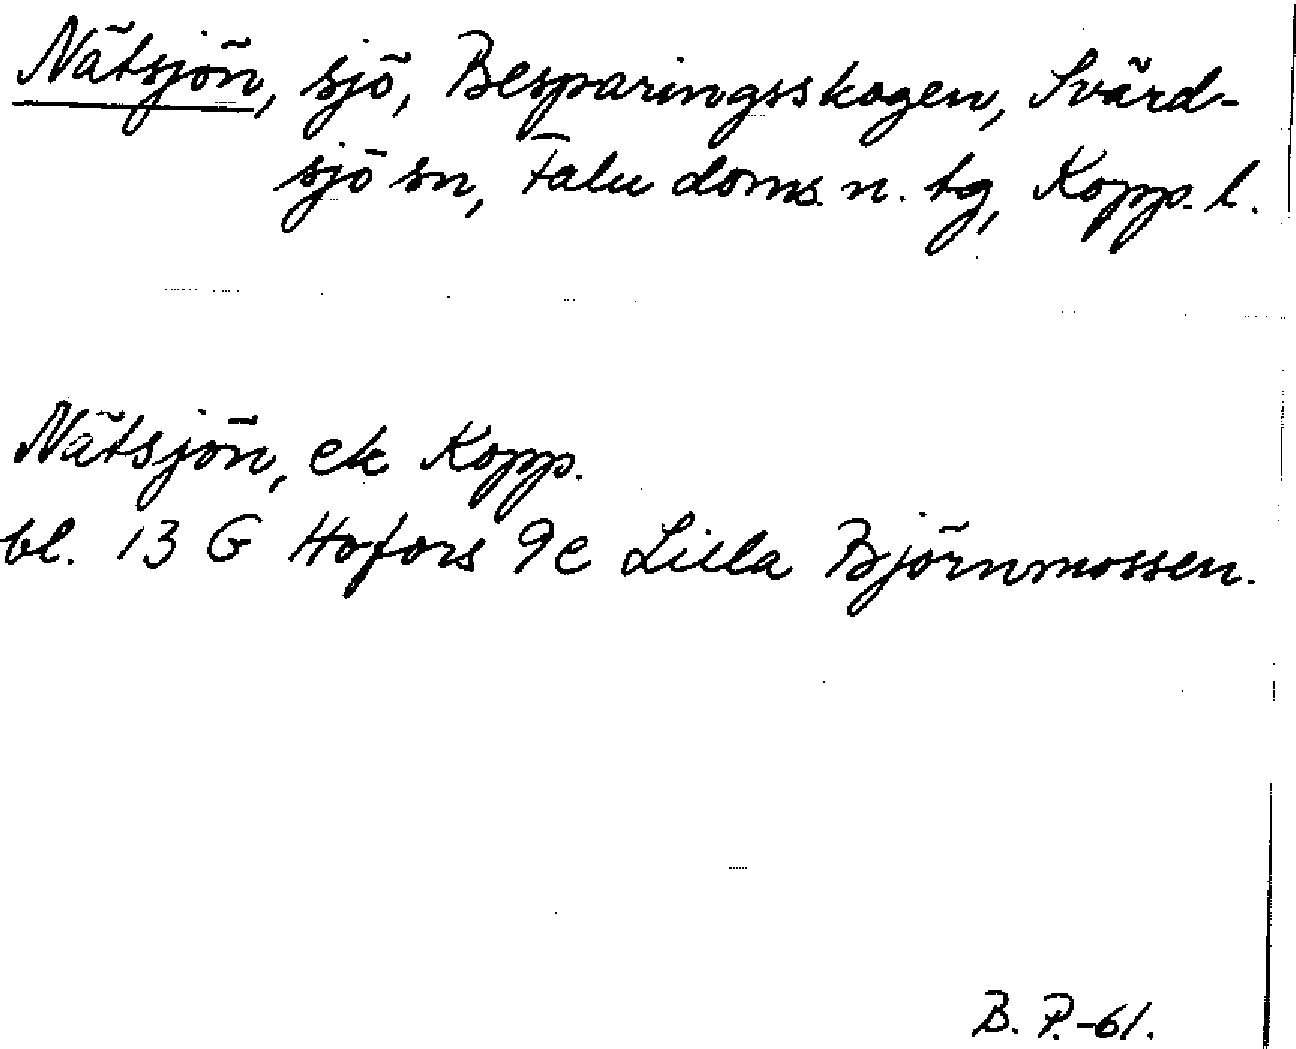 Nätsjön, sjö, Besparingsskogen, Svärd-
sjö sn, Falu doms. n. tg, Kopp. l.
Nätsjön, ek Kopp.
bl. 13 G Hofors 9c Lilla Björnmossen.
B. P.-61.